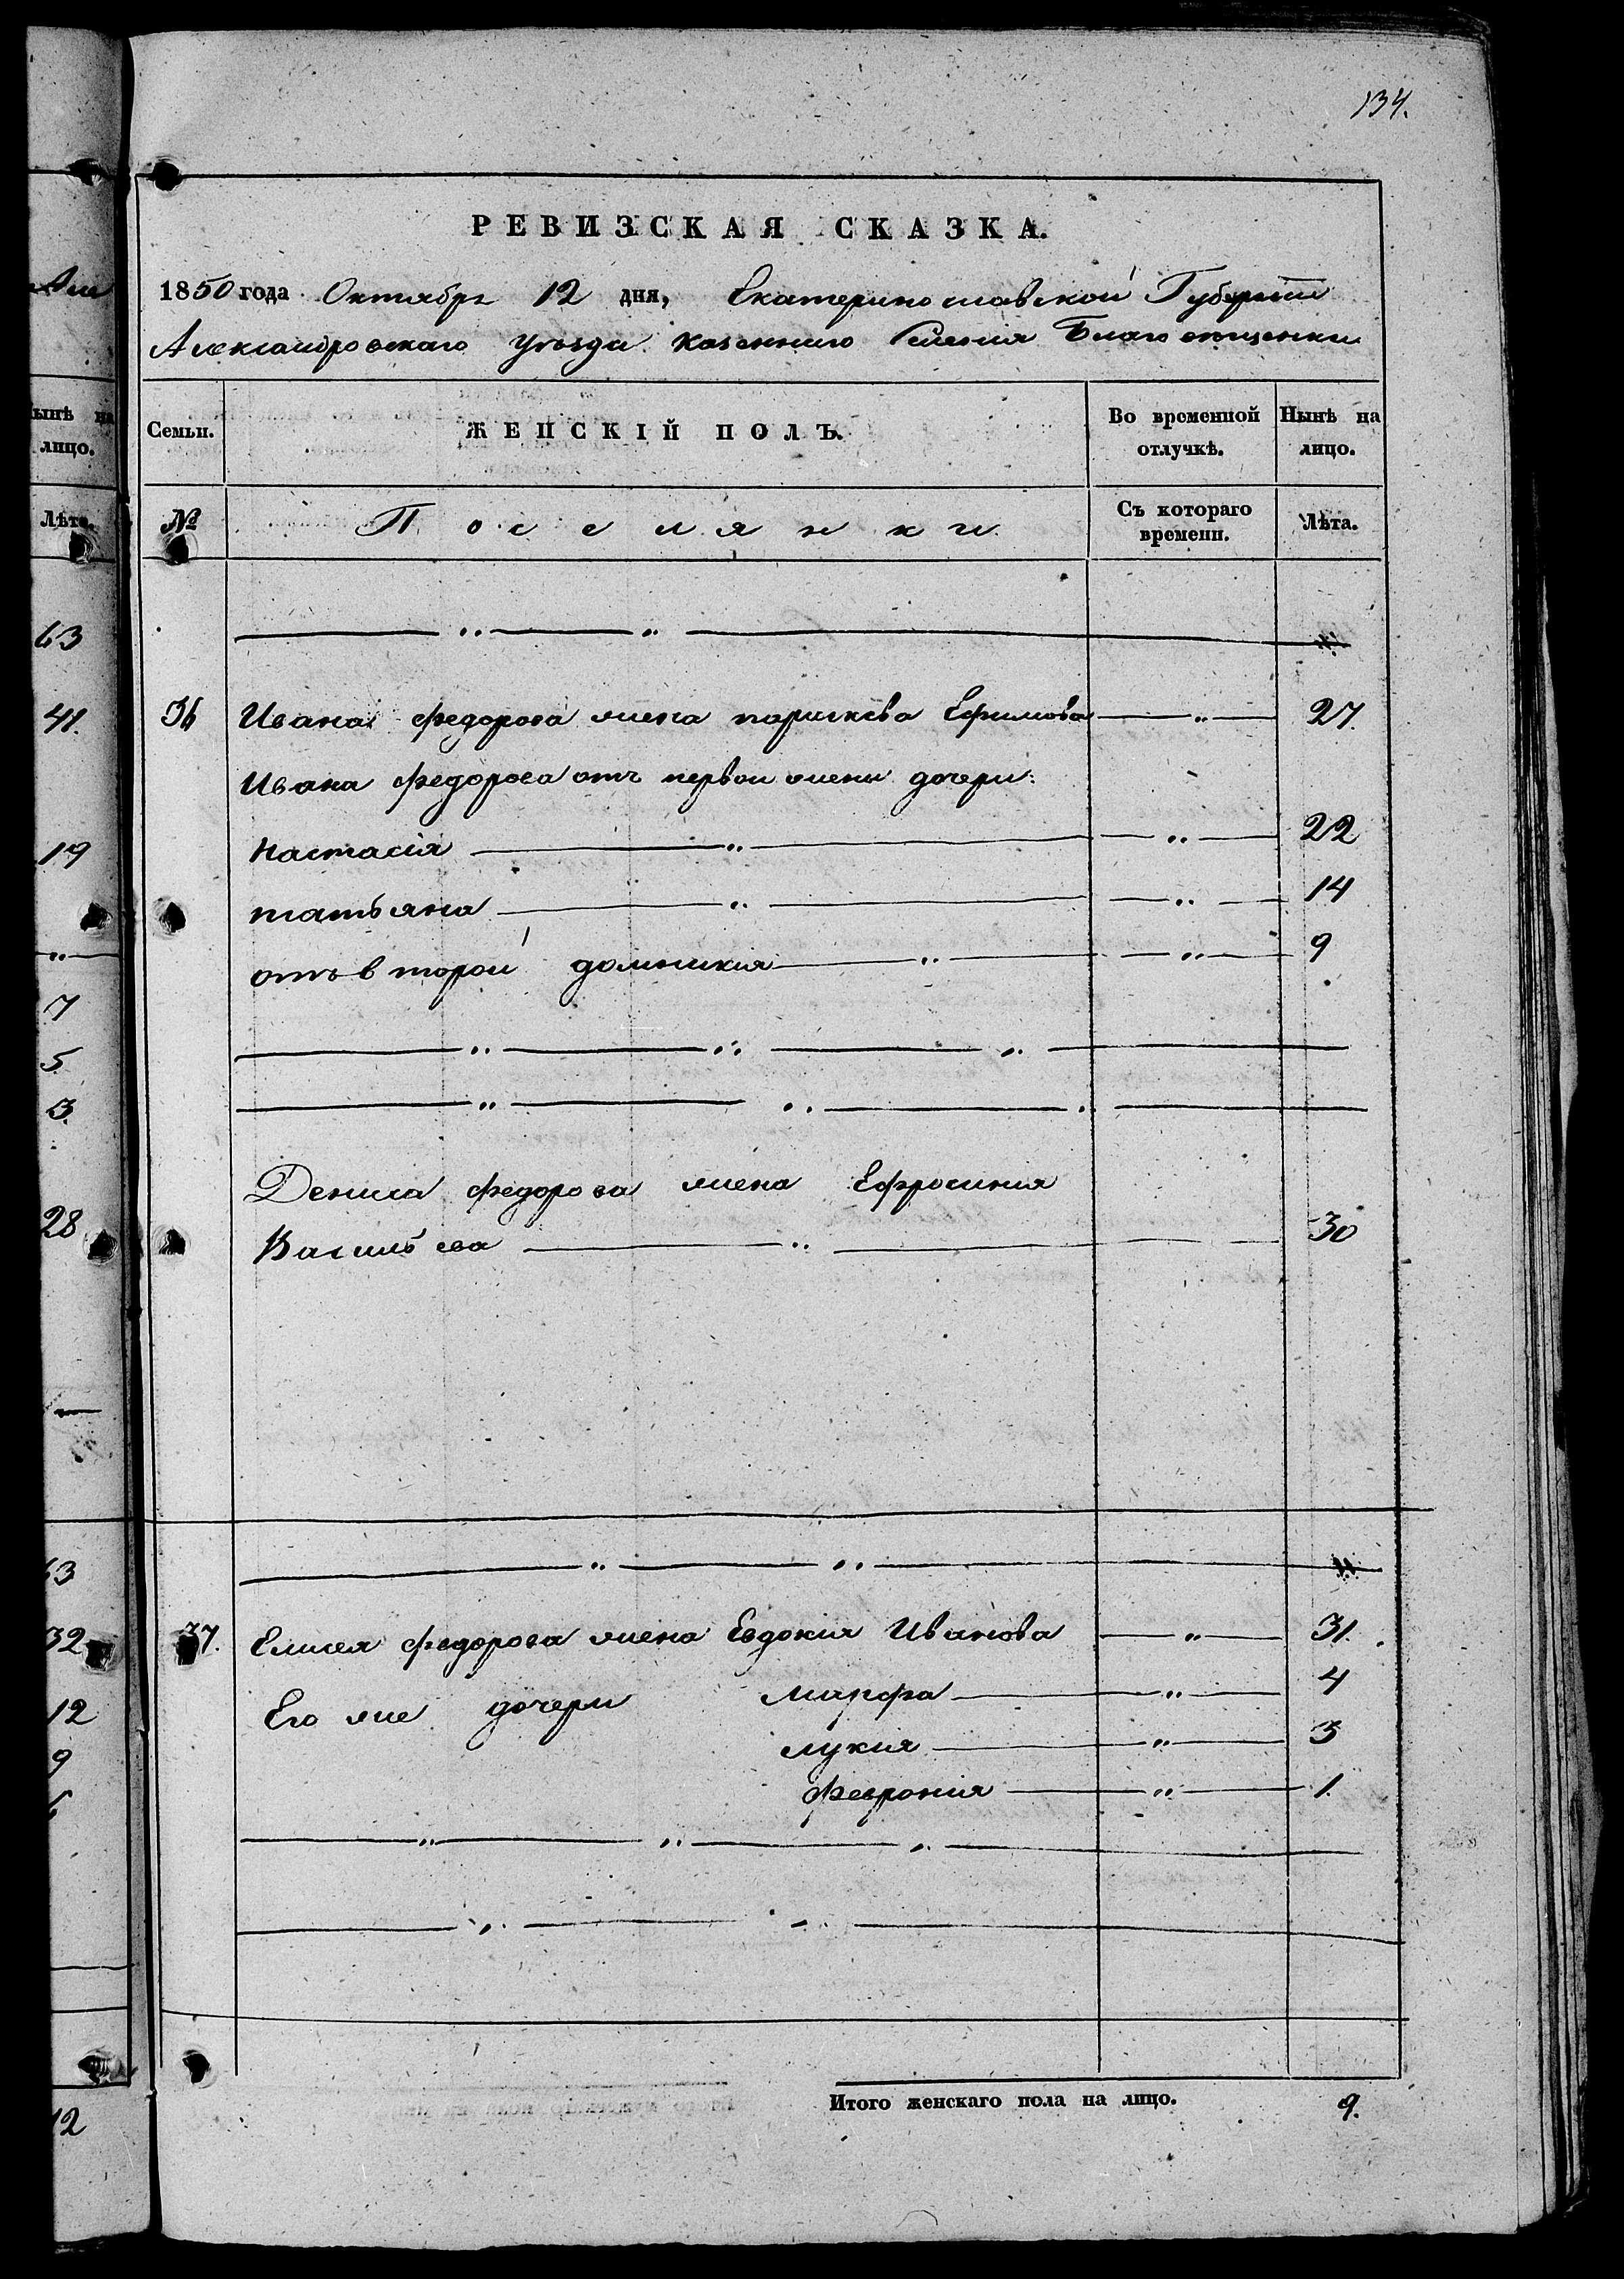 134.
РЕВИЗСКАЯ СКАЗКА.
1850 года Октября 12 дня, Екатеринославской Губернии
Александровскаго Уѣзда Казеннаго Селенія Благовещенки
Семьи. ЖЕНСКІЙ ПОЛЪ. Во временной отлучкѣ. Нынѣ на лицо.
№ Поселянки Съ котораго времени. Лѣта.
36 Ивана Федорова жена параскева Ефимова 27.
Ивана Федорова отъ первой жены дочери:
Настасія 22
татьяна 14
отъ второй домникія 9
Денила Федорова жена Ефросинія
Васильева 30
37. Елисея Федорова жена Евдокия Иванова 31.
Его же дочери Марфа 4
лукия 3
Феврония 1.
Итого женскаго пола на лицо. 9.
нынѣ на
лицо.
Лѣта.
63
41.
19
7
5
3.
28
63
32
12
9
6
12